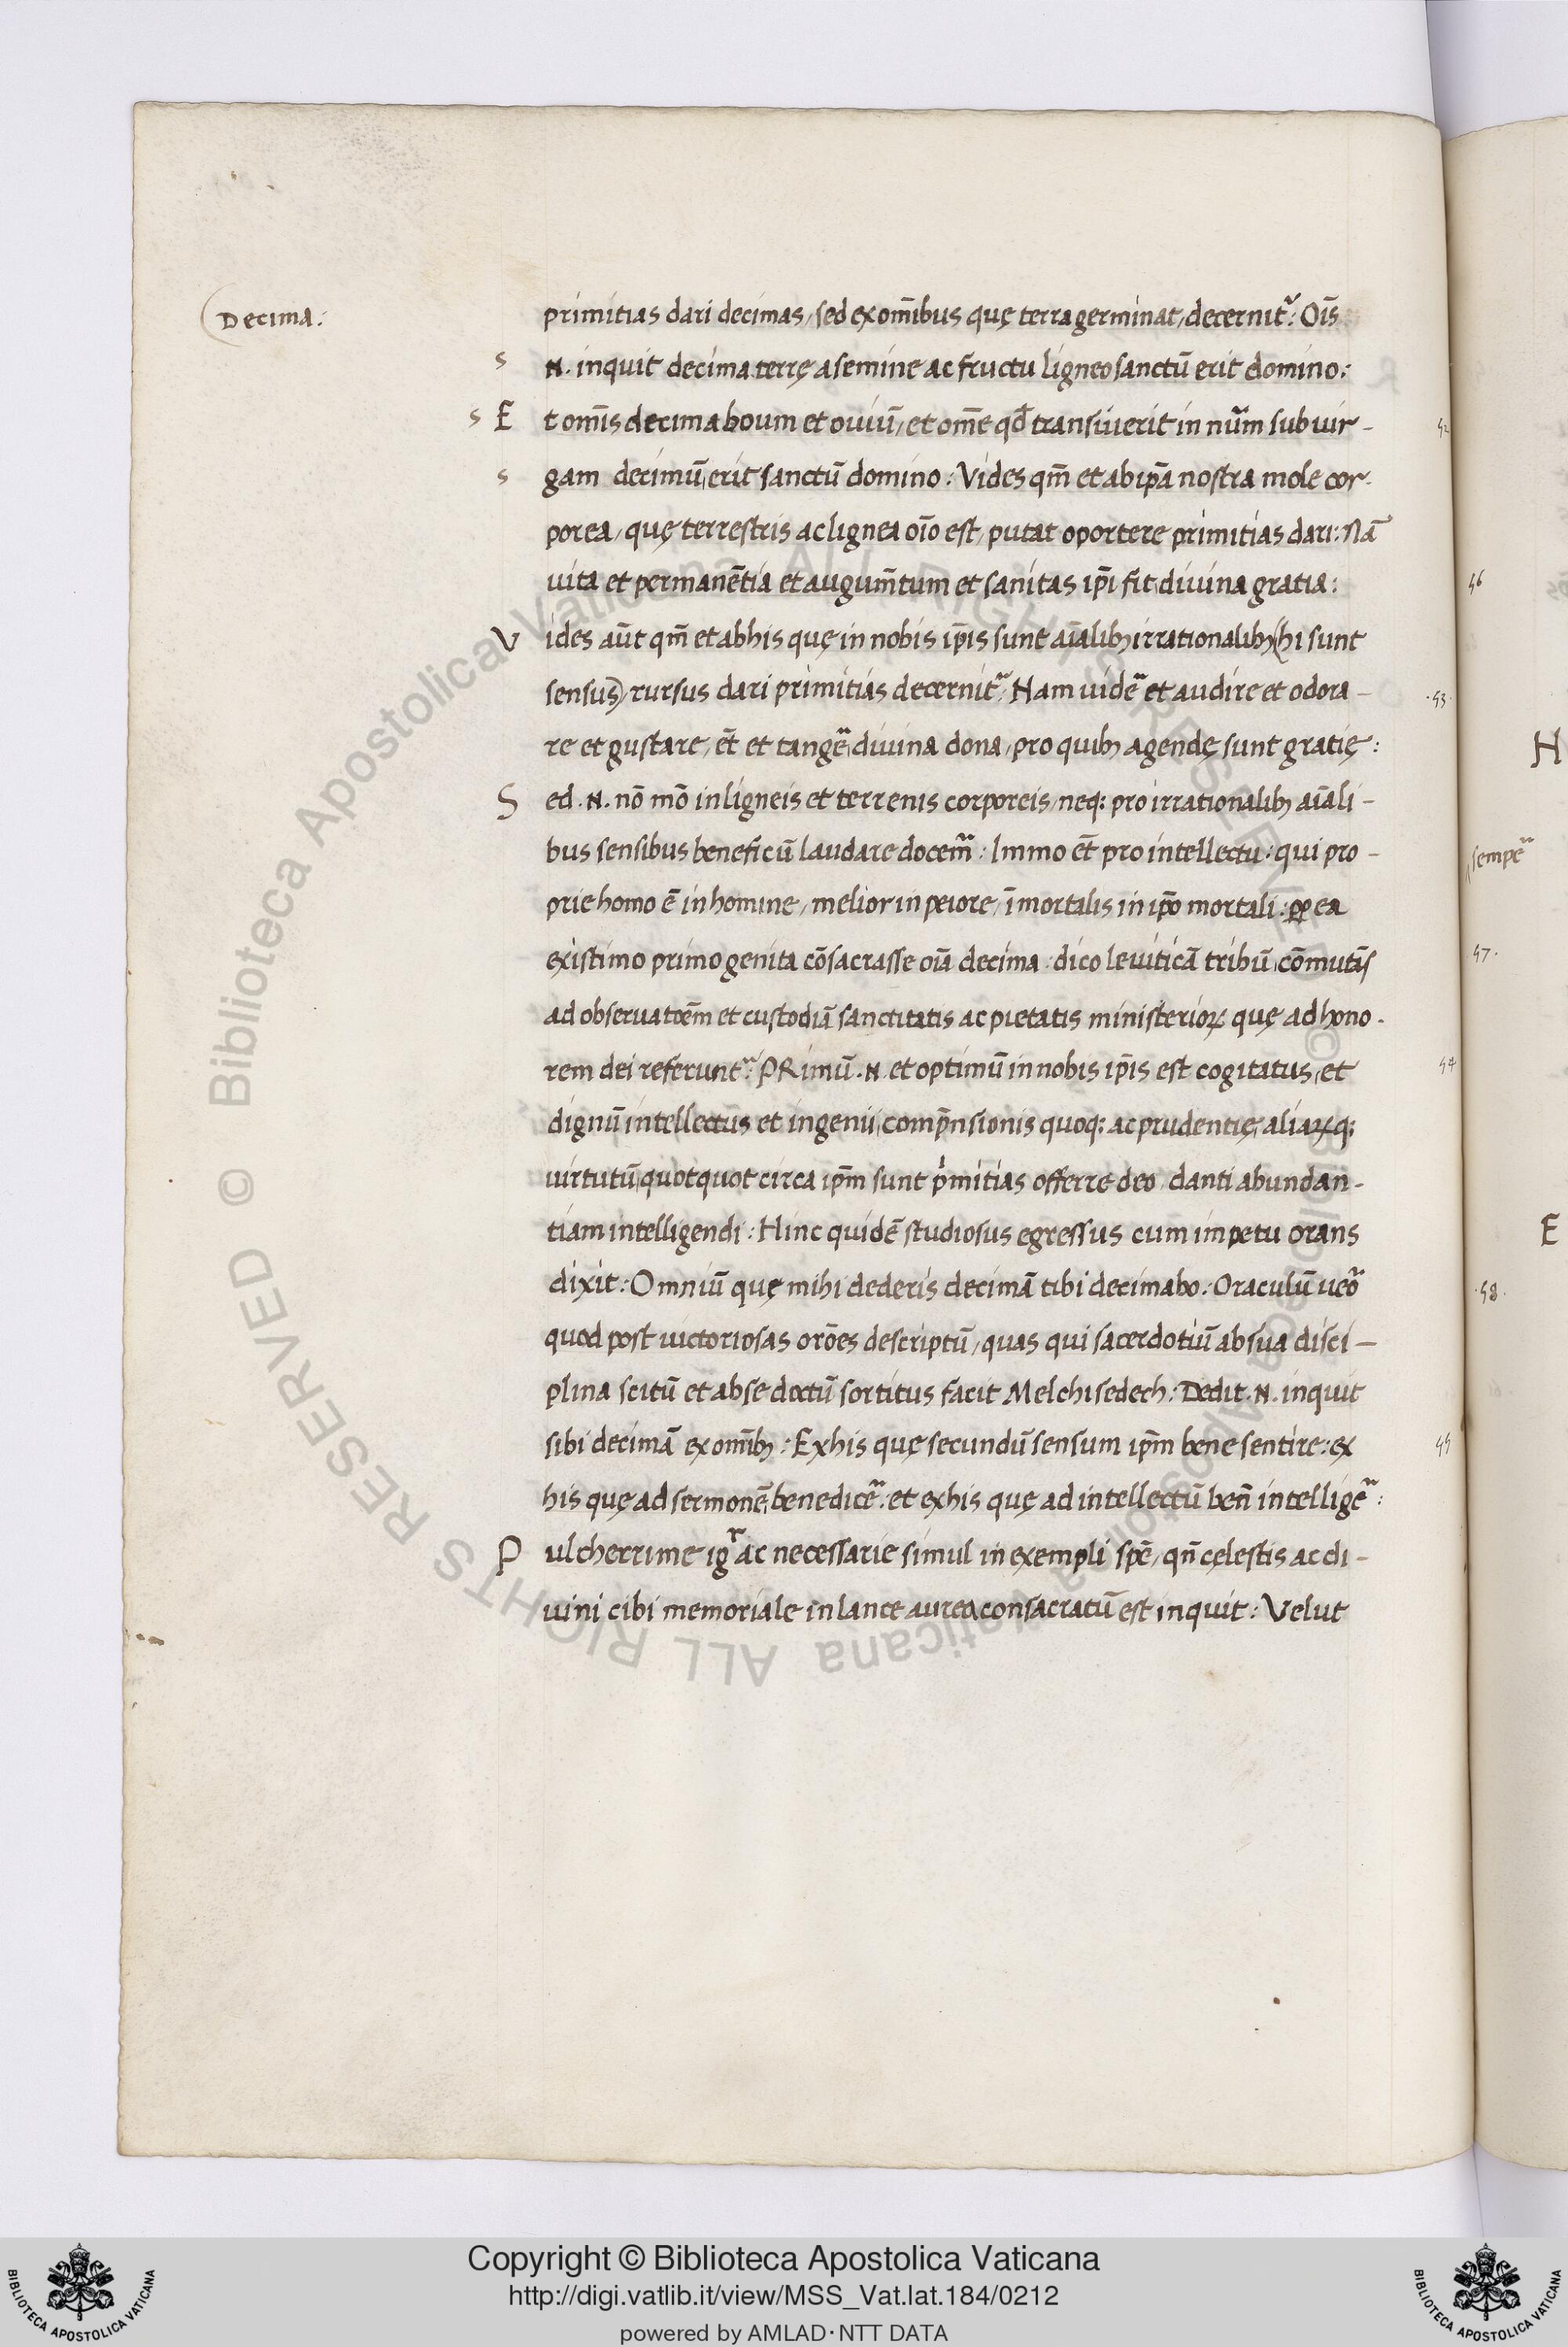 Decima:
primitias dari decimas, sed ex om̄ibus quę terra germinat, decernit᷑: Oīs
s N. inquit decima terrę a semine ac fructu ligneo sanctū erit domino:
s Et om̄is decima boum et ouiū, et om̄e qđ transiuerit in nūm sub uir-
s gam decimū, erit sanctū domino: Vides qm̄ et ab ip̄a nostra mole cor-
porea, quę terrestris ac lignea oīo est, putat oportere primitias dari: Nā
uita et permanētia et augum̄tum et sanitas ip̄i fit diuina gratia:
Vides aūt qm̄ et ab his quę in nobis ip̄is sunt aīalibꝫ irrationalibꝫ (hi sunt
sensus) rursus dari primitias decernit᷑: Nam uidē et audire et odora-
re et gustare, et̄ et tangē, diuina dona, pro quibꝫ agendę sunt gratię:
Sed .N. nō mō in ligneis et terrenis corporeis, neq: pro irrationalibꝫ aīali-
bus sensibus beneficū laudare docem᷑: Immo et̄ pro intellectu: qui pro-
prie homo ē in homine, melior in peiore, īmortalis in ip̄o mortali: ꝓp ea
existimo primogenita cōsacrasse oīa decima: dico leuiticā tribū, cōmutās
ad obseruatōem et custodiā sanctitatis ac pietatis ministerioꝝ quę ad hono-
rem dei referunt᷑: PRimū .N. et optimū in nobis ip̄is est cogitatus, et
dignū intellectus et ingenii, comp̄nsionis quoq: ac prudentię, aliaꝝq:
uirtutū, quotquot circa ip̄m sunt p̍mitias offerre deo, danti abundan-
tiam intelligendi: Hinc quidē studiosus egressus cum impetu orans
dixit: Omniū quę mihi dederis decimā tibi decimabo: Oraculū ueō
quod post uictoriosas orōes descriptū, quas qui sacerdotiū ab sua disci-
plina scitū et ab se doctū sortitus facit Melchisedech: Dedit .N. inquit
sibi decimā ex om̄ibꝫ: Ex his quę secundū sensum ip̄m bene sentire: ex
his quę ad sermonē, benedicē: et ex his quę ad intellectū ben̄ intelligē:
Pulcherrime igr̄ ac necessarie simul in exempli spē, qn̄ cęlestis ac di-
uini cibi memoriale in lance aurea consacratū est inquit: Velut
52
53
54
55
56
H
sempē
57.
E
.58.
© Biblioteca Apostolica Vaticana ALL RIGHTS RESERVED © Biblioteca Apostolica Vaticana ALL RIGHTS RESERVED
Copyright © Biblioteca Apostolica Vaticana
http://digi.vatlib.it/view/MSS_Vat.lat.184/0212
powered by AMLAD·NTT DATA
BIBLIOTECA APOSTOLICA VATICANA
BIBLIOTECA APOSTOLICA VATICANA